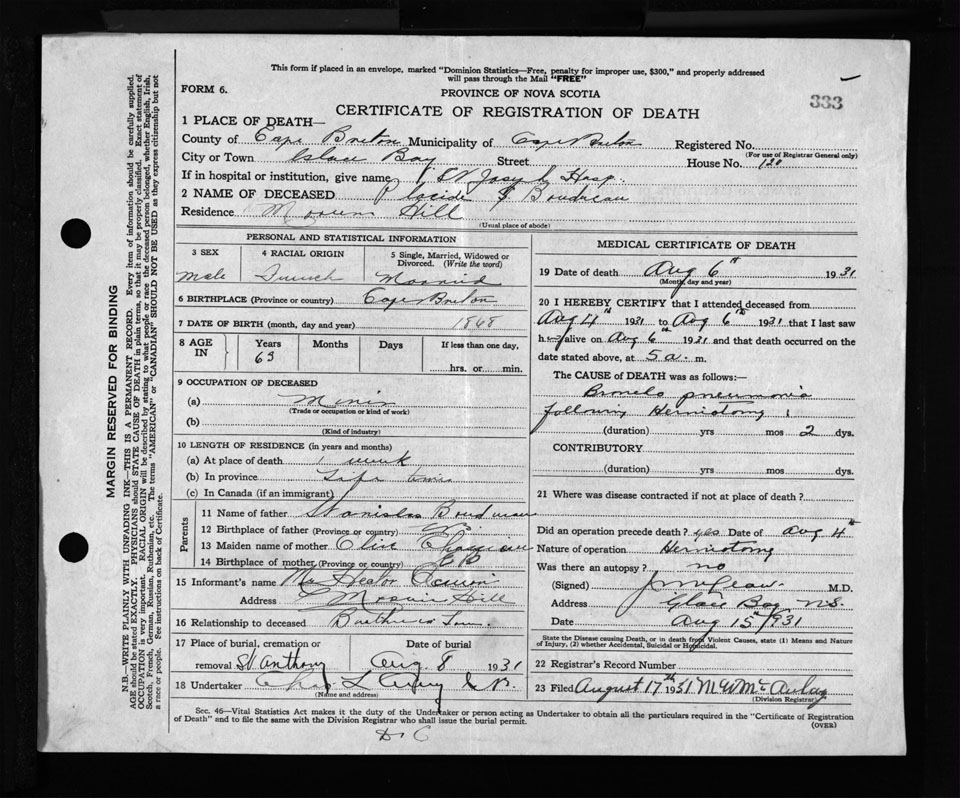 This form if placed in an envelope, marked "Dominion Statistics—Free, penalty for improper use, $300," and properly addressed
will pass through the Mail "FREE"
FORM 6.
PROVINCE OF NOVA SCOTIA
333
CERTIFICATE OF REGISTRATION OF DEATH
1 PLACE OF DEATH—
County of Cape Breton Municipality of Cape Breton Registered No.
(For use of Registrar General only)
City or Town Glace Bay Street House No. 120
If in hospital or institution, give name St Joseph Hosp.
2 NAME OF DECEASED Placide Boudreau
Residence Hill
(Usual place of abode)
PERSONAL AND STATISTICAL INFORMATION
3 SEX
4 RACIAL ORIGIN
5 Single, Married, Widowed or Divorced. (Write the word)
Male French Married
6 BIRTHPLACE (Province or country) Cape Breton
7 DATE OF BIRTH (month, day and year) 1868
8 AGE IN
Years Months Days If less than one day,
63
hrs. or min.
9 OCCUPATION OF DECEASED
(a) Miner
(Trade or occupation or kind of work)
(b)
(Kind of industry)
10 LENGTH OF RESIDENCE (in years and months)
(a) At place of death 1 week
(b) In province Life time
(c) In Canada (if an immigrant)
Parents
11 Name of father Stanislas Boudreau
12 Birthplace of father (Province or country)
13 Maiden name of mother Olive
14 Birthplace of mother (Province or country) CB
15 Informant's name Hector
Address Hill
16 Relationship to deceased
17 Place of burial, cremation or Date of burial
removal St Anthony Aug. 8 1931
18 Undertaker
(Name and address)
MEDICAL CERTIFICATE OF DEATH
19 Date of death Aug 6th 1931
(Month, day and year)
20 I HEREBY CERTIFY that I attended deceased from
Aug 4th 1931 to Aug 6th 1931 that I last saw
h alive on Aug 6th 1931 and that death occurred on the
date stated above, at 5 a. m.
The CAUSE of DEATH was as follows:—
Broncho pneumonia
following Herniotomy
(duration) yrs mos 2 dys.
CONTRIBUTORY
(duration) yrs mos dys.
21 Where was disease contracted if not at place of death?
Did an operation precede death? yes Date of Aug 4th
Nature of operation Herniotomy
Was there an autopsy? no
(Signed) M.D.
Address Glace Bay N.S.
Date Aug 15th 1931
State the Disease causing Death, or in death from Violent Causes, state (1) Means and Nature
of Injury, (2) whether Accidental, Suicidal or Homicidal.
22 Registrar's Record Number
23 Filed August 17th 1931 M W McAulay
(Division Registrar)
Sec. 46—Vital Statistics Act makes it the duty of the Undertaker or person acting as Undertaker to obtain all the particulars required in the "Certificate of Registration
of Death" and to file the same with the Division Registrar who shall issue the burial permit.
(OVER)
MARGIN RESERVED FOR BINDING
N.B.—WRITE PLAINLY WITH UNFADING INK—THIS IS A PERMANENT RECORD. Every item of information should be carefully supplied.
AGE should be stated EXACTLY. PHYSICIANS should STATE CAUSE OF DEATH in plain terms, so that it may be properly classified. Exact statement of
OCCUPATION is very important. RACIAL ORIGIN will be described by stating to what people or race the deceased person belonged, whether English, Irish,
Scotch, French, German, Russian, Ruthenian, etc. The terms "AMERICAN" or "CANADIAN" SHOULD NOT BE USED as they express citizenship but not
a race or people. See instructions on back of Certificate.